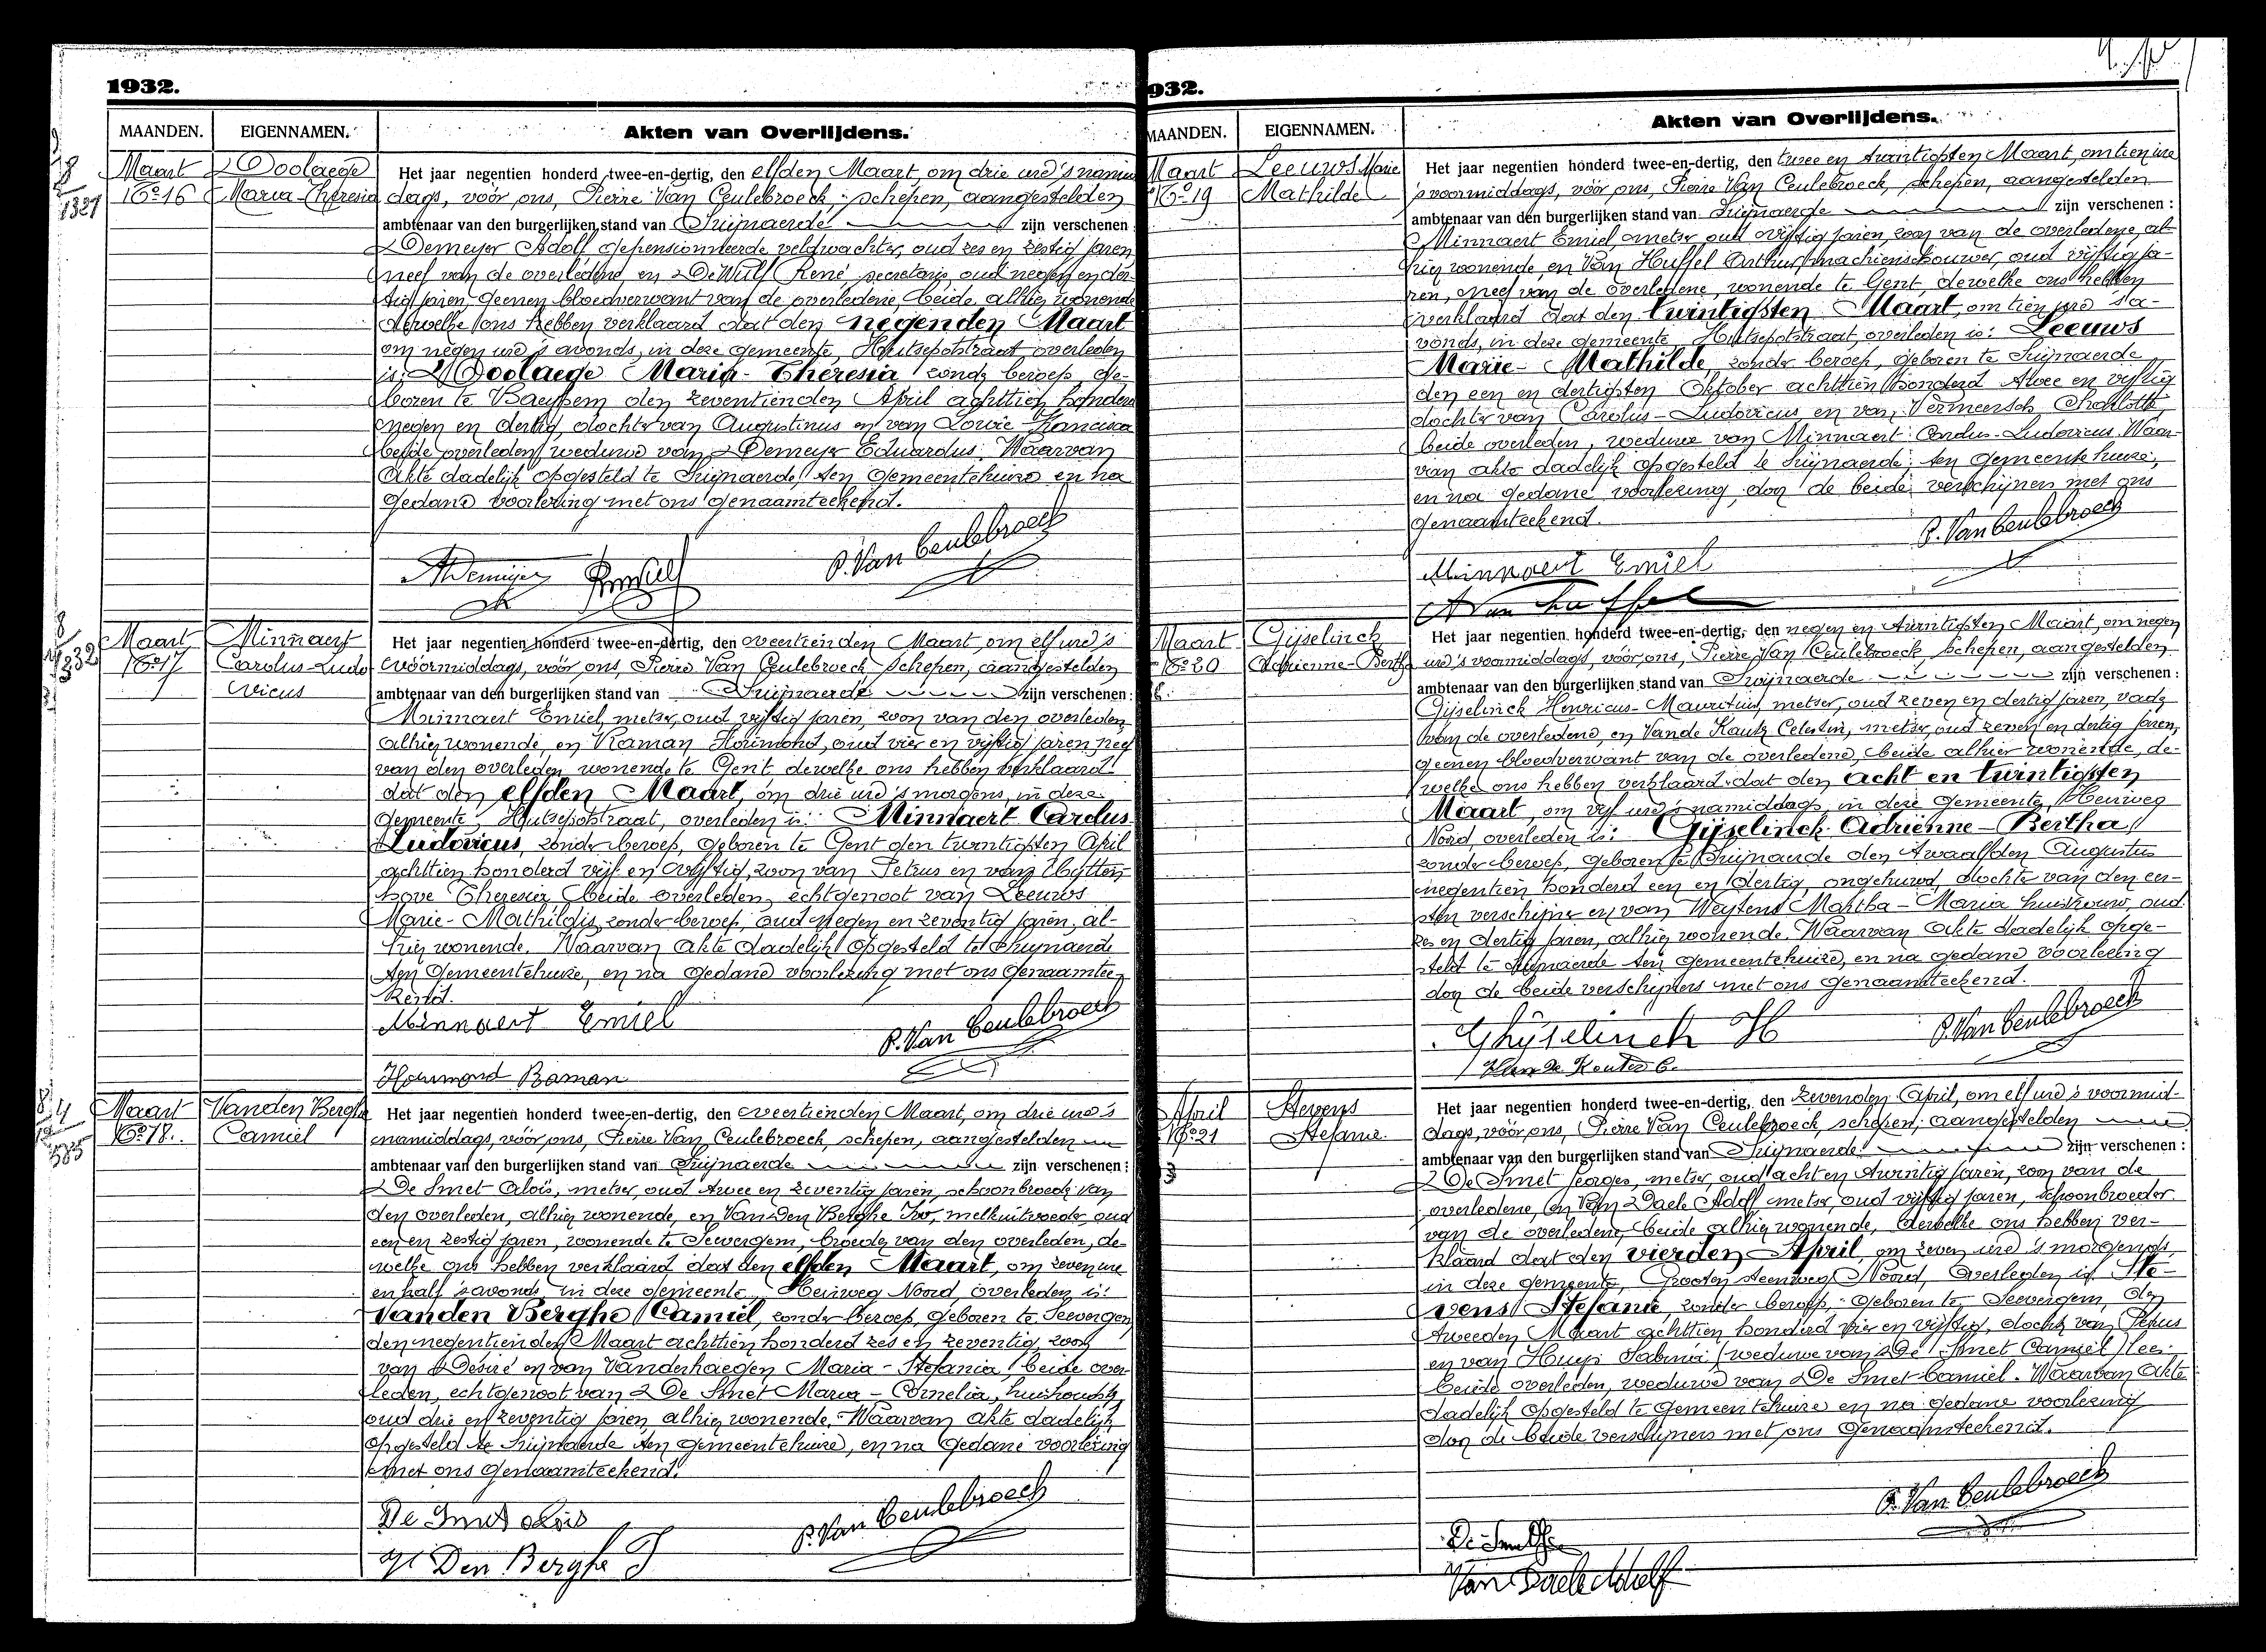 1932.
MAANDEN. EIGENNAMEN. Akten van Overlijdens.
Maart
No 16
D'Oolaege
Maria-Theresia
Het jaar negentien honderd twee-en-dertig, den elfden Maart, om drie ure 's namid
dags, vóór ons, Pierre Van Ceulebroeck, schepen, aangestelden
ambtenaar van den burgerlijken stand van Zwijnaerde zijn verschenen :
Demeyer Adolf gepensionneerde veldwachter, oud zes en zestig jaren,
neef van de overledene, en De Wulf René, secretaris, oud negen en der-
tig jaren, geenen bloedverwant van de overledene, beide alhier wonende
dewelke ons hebben verklaard dat den negenden Maart
om negen ure 's avonds, in deze gemeente, Hutsepotstraat overleden
is: D'Oolaege Maria-Theresia zonder beroep ge-
boren te den zeventienden April achttien honderd
negen en dertig, dochter van Augustinus en van Lowie Francisca
beide overleden, weduwe van Demeyer Eduardus. Waarvan
Akte dadelijk opgesteld te Zwijnaerde, ten gemeentehuize en na
gedane voorlezing met ons genaamteekend.
P. Van Ceulebroeck
Maart
No 17
Minnaert
Carolus-Ludo
vicus
Het jaar negentien honderd twee-en-dertig, den veertienden Maart, om elf ure 's
voormiddags, vóór ons, Pierre Van Ceulebroeck schepen, aangestelden
ambtenaar van den burgerlijken stand van Zwijnaerde zijn verschenen :
Minnaert Emiel, metser, oud vijftig jaren, zoon van den overleden,
alhier wonende, en Raman Hourmond, oud vier en vijftig jaren, neef
van den overleden wonende te Gent dewelke ons hebben verklaard
dat den elfden Maart, om drie ure 's morgens, in deze
gemeente, Hutsepotstraat, overleden is: Minnaert Carolus
Ludovicus, zonder beroep, geboren te Gent den twintigsten April
achttien honderd vijf en vijftig, zoon van Petrus en van Uytten-
hove Theresia beide overleden, echtgenoot van Leeuws
Marie-Mathildis, zonder beroep, oud negen en zeventig jaren, al-
hier wonende. Waarvan Akte dadelijk opgesteld te Zwijnaerde
ten gemeentehuize, en na gedane voorlezing met ons genaamtee-
kend.
Minnaert Emiel
P. Van Ceulebroeck
Hourmond Raman
Maart
No 18.
Vanden Berghe
Camiel
Het jaar negentien honderd twee-en-dertig, den veertienden Maart, om drie ure 's
namiddags, vóór ons, Pierre Van Ceulebroeck, schepen, aangestelden
ambtenaar van den burgerlijken stand van Zwijnaerde zijn verschenen :
De Smet Aloïs, metser, oud twee en zeventig jaren, schoonbroeder van
den overleden, alhier wonende, en Van Den Berghe Ivo, melkuitvoerder, oud
een en zestig jaren, wonende te Seevergem, broeder van den overleden, de-
welke ons hebben verklaard dat den elfden Maart, om zeven ure
en half 's avonds in deze gemeente, Heirweg Noord, overleden is:
Vanden Berghe Camiel, zonder beroep, geboren te Seevergem
den negentienden Maart achttien honderd zes en zeventig, zoon
van Désiré en van Vanderhaegen Maria-Stefania, beide over-
leden, echtgenoot van De Smet Maria-Cornelia, huishoudster
oud drie en zeventig jaren, alhier wonende. Waarvan Akte dadelijk
opgesteld te Zwijnaerde ten gemeentehuize, en na gedane voorlezing
met ons genaamteekend.
De Smet Aloïs
P. Van Ceulebroeck
Den Berghe I
932.
MAANDEN. EIGENNAMEN. Akten van Overlijdens.
Maart
No 19
Leeuws Marie
Mathilde
Het jaar negentien honderd twee-en-dertig, den twee en twintigsten Maart, om tien ure
's voormiddags, vóór ons, Pierre Van Ceulebroeck, schepen, aangestelden
ambtenaar van den burgerlijken stand van Zwijnaerde zijn verschenen :
Minnaert Emiel, metser oud vijftig jaren, zoon van de overledene, al-
hier wonende, en Van Huffel Arthur, machienschouwer, oud vijftig ja-
ren, neef van de overledene, wonende te Gent, dewelke ons hebben
verklaard dat den twintigsten Maart, om tien ure 's a-
vonds, in deze gemeente Hutsepotstraat, overleden is: Leeuws
Marie-Mathilde, zonder beroep, geboren te Zwijnaerde
den een en dertigsten Oktober achttien honderd twee en vijftig
dochter van Carolus-Ludovicus en van Vermeersch Charlotte
beide overleden, weduwe van Minnaert Carolus-Ludovicus. Waar-
van akte dadelijk opgesteld te Zwijnaerde, ten gemeentehuize,
en na gedane voorlezing, door de beide verschijners met ons
genaamteekend.
P. Van Ceulebroeck
Minnaert Emiel
A Van Huffel
Maart
No 20
Gijselinck
Adrienne-Bertha
Het jaar negentien honderd twee-en-dertig, den negen en twintigsten Maart, om negen
ure 's voormiddags, vóór ons, Pierre Van Ceulebroeck, schepen, aangestelden
ambtenaar van den burgerlijken stand van Zwijnaerde zijn verschenen :
Gijselinck Henricus-Mauritius, metser, oud zeven en dertig jaren, vader
van de overledene, en Vande Kauter Celestin, metser, oud zeven en dertig jaren,
geenen bloedverwant van de overledene, beide alhier wonende, de-
welke ons hebben verklaard dat den acht en twintigsten
Maart, om vijf ure 's namiddags, in deze gemeente, Heirweg
Noord overleden is: Gijselinck Adrienne-Bertha
zonder beroep, geboren te Zwijnaerde den twaalfden Augustus
negentien honderd een en dertig, ongehuwd, dochter van den eer-
sten verschijner en van Weytens Martha-Maria huisvrouw, oud
zes en dertig jaren, alhier wonende. Waarvan Akte dadelijk opge-
steld te Zwijnaerde ten gemeentehuize, en na gedane voorlezing
door de beide verschijners met ons genaamteekend.
Ghijselinck H
P. Van Ceulebroeck
Van de Keuter C.
April
No 21
Stevens
Stefanie.
Het jaar negentien honderd twee-en-dertig, den zevenden April, om elf ure 's voormid-
dags, vóór ons, Pierre Van Ceulebroeck, schepen, aangestelden
ambtenaar van den burgerlijken stand van Zwijnaerde zijn verschenen :
De Smet Georges, metser, oud acht en twintig jaren, zoon van de
overledene, en Van Daele Adolf metser, oud vijftig jaren, schoonbroeder
van de overledene, beide alhier wonende, dewelke ons hebben ver-
klaard dat den vierden April, om zeven ure 's morgends,
in deze gemeente, Grooten steenweg Noord, overleden is Ste-
vens Stefanie, zonder beroep, geboren te Seevergem, den
tweeden Maart achttien honderd vier en vijftig, dochter van Petrus
en van Huys Sabina (weduwe van De Smet Camiel)
beide overleden, weduwe van De Smet Camiel. Waarvan Akte
dadelijk opgesteld te gemeentehuize en na gedane voorlezing
door de beide verschijners met ons genaamteekend.
P. Van Ceulebroeck
De Smet
Van Daele Adolf